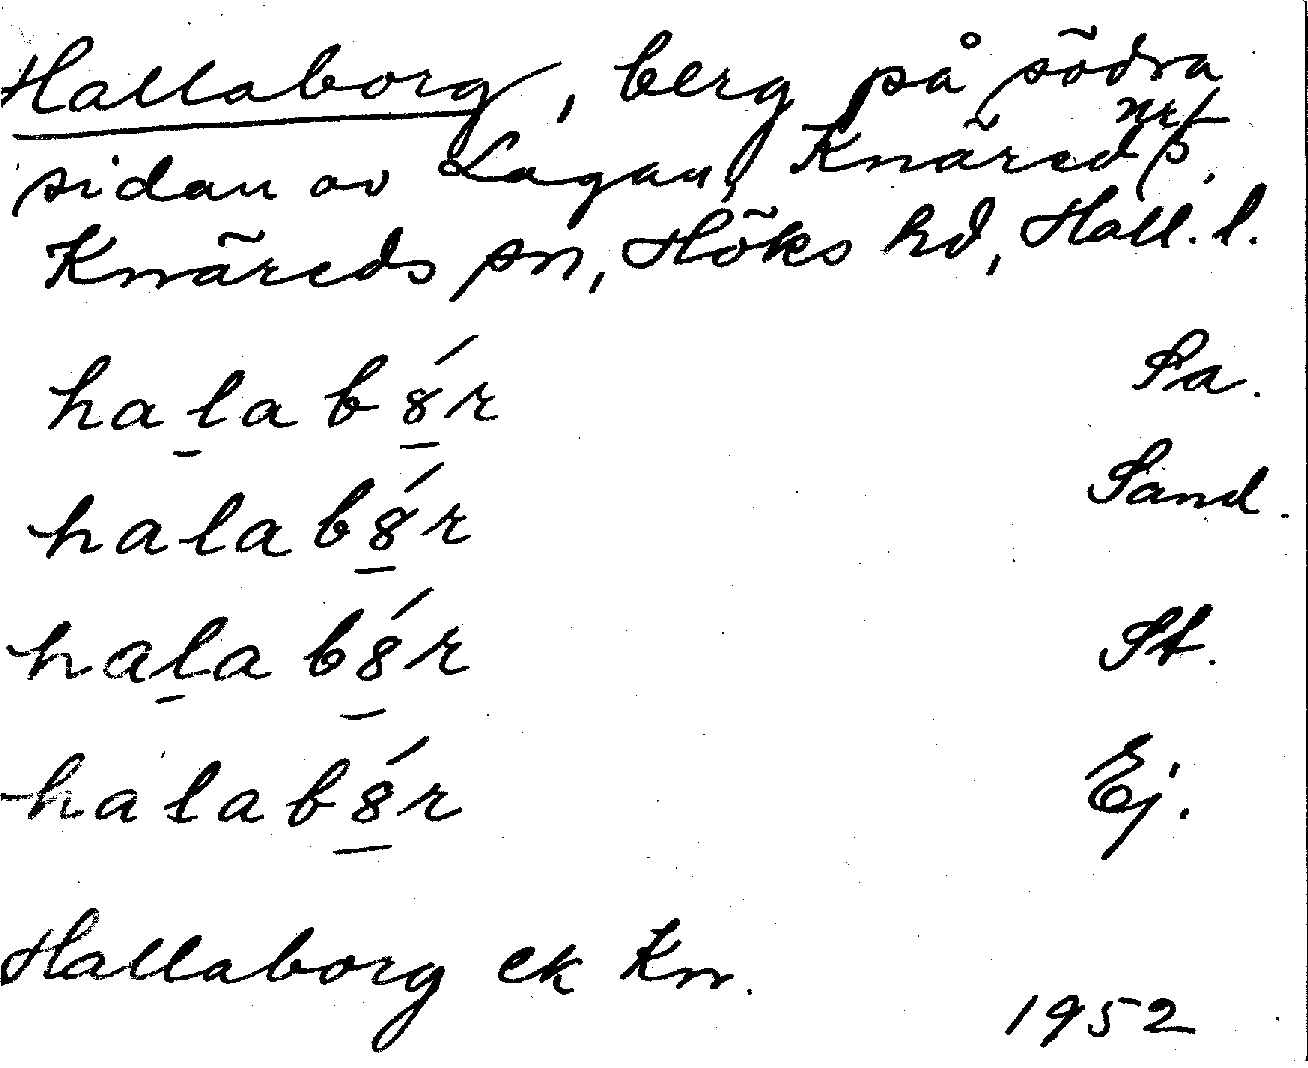 Hallaborg, berg på södra
sidan av Lagan, Knäreds
Knäreds sn, Höks hd, Hall. l.
halab8́r Sa.
halab8́r Sand.
halab8́r St.
halab8́r Ej.
Hallaborg ek Kn.
1952